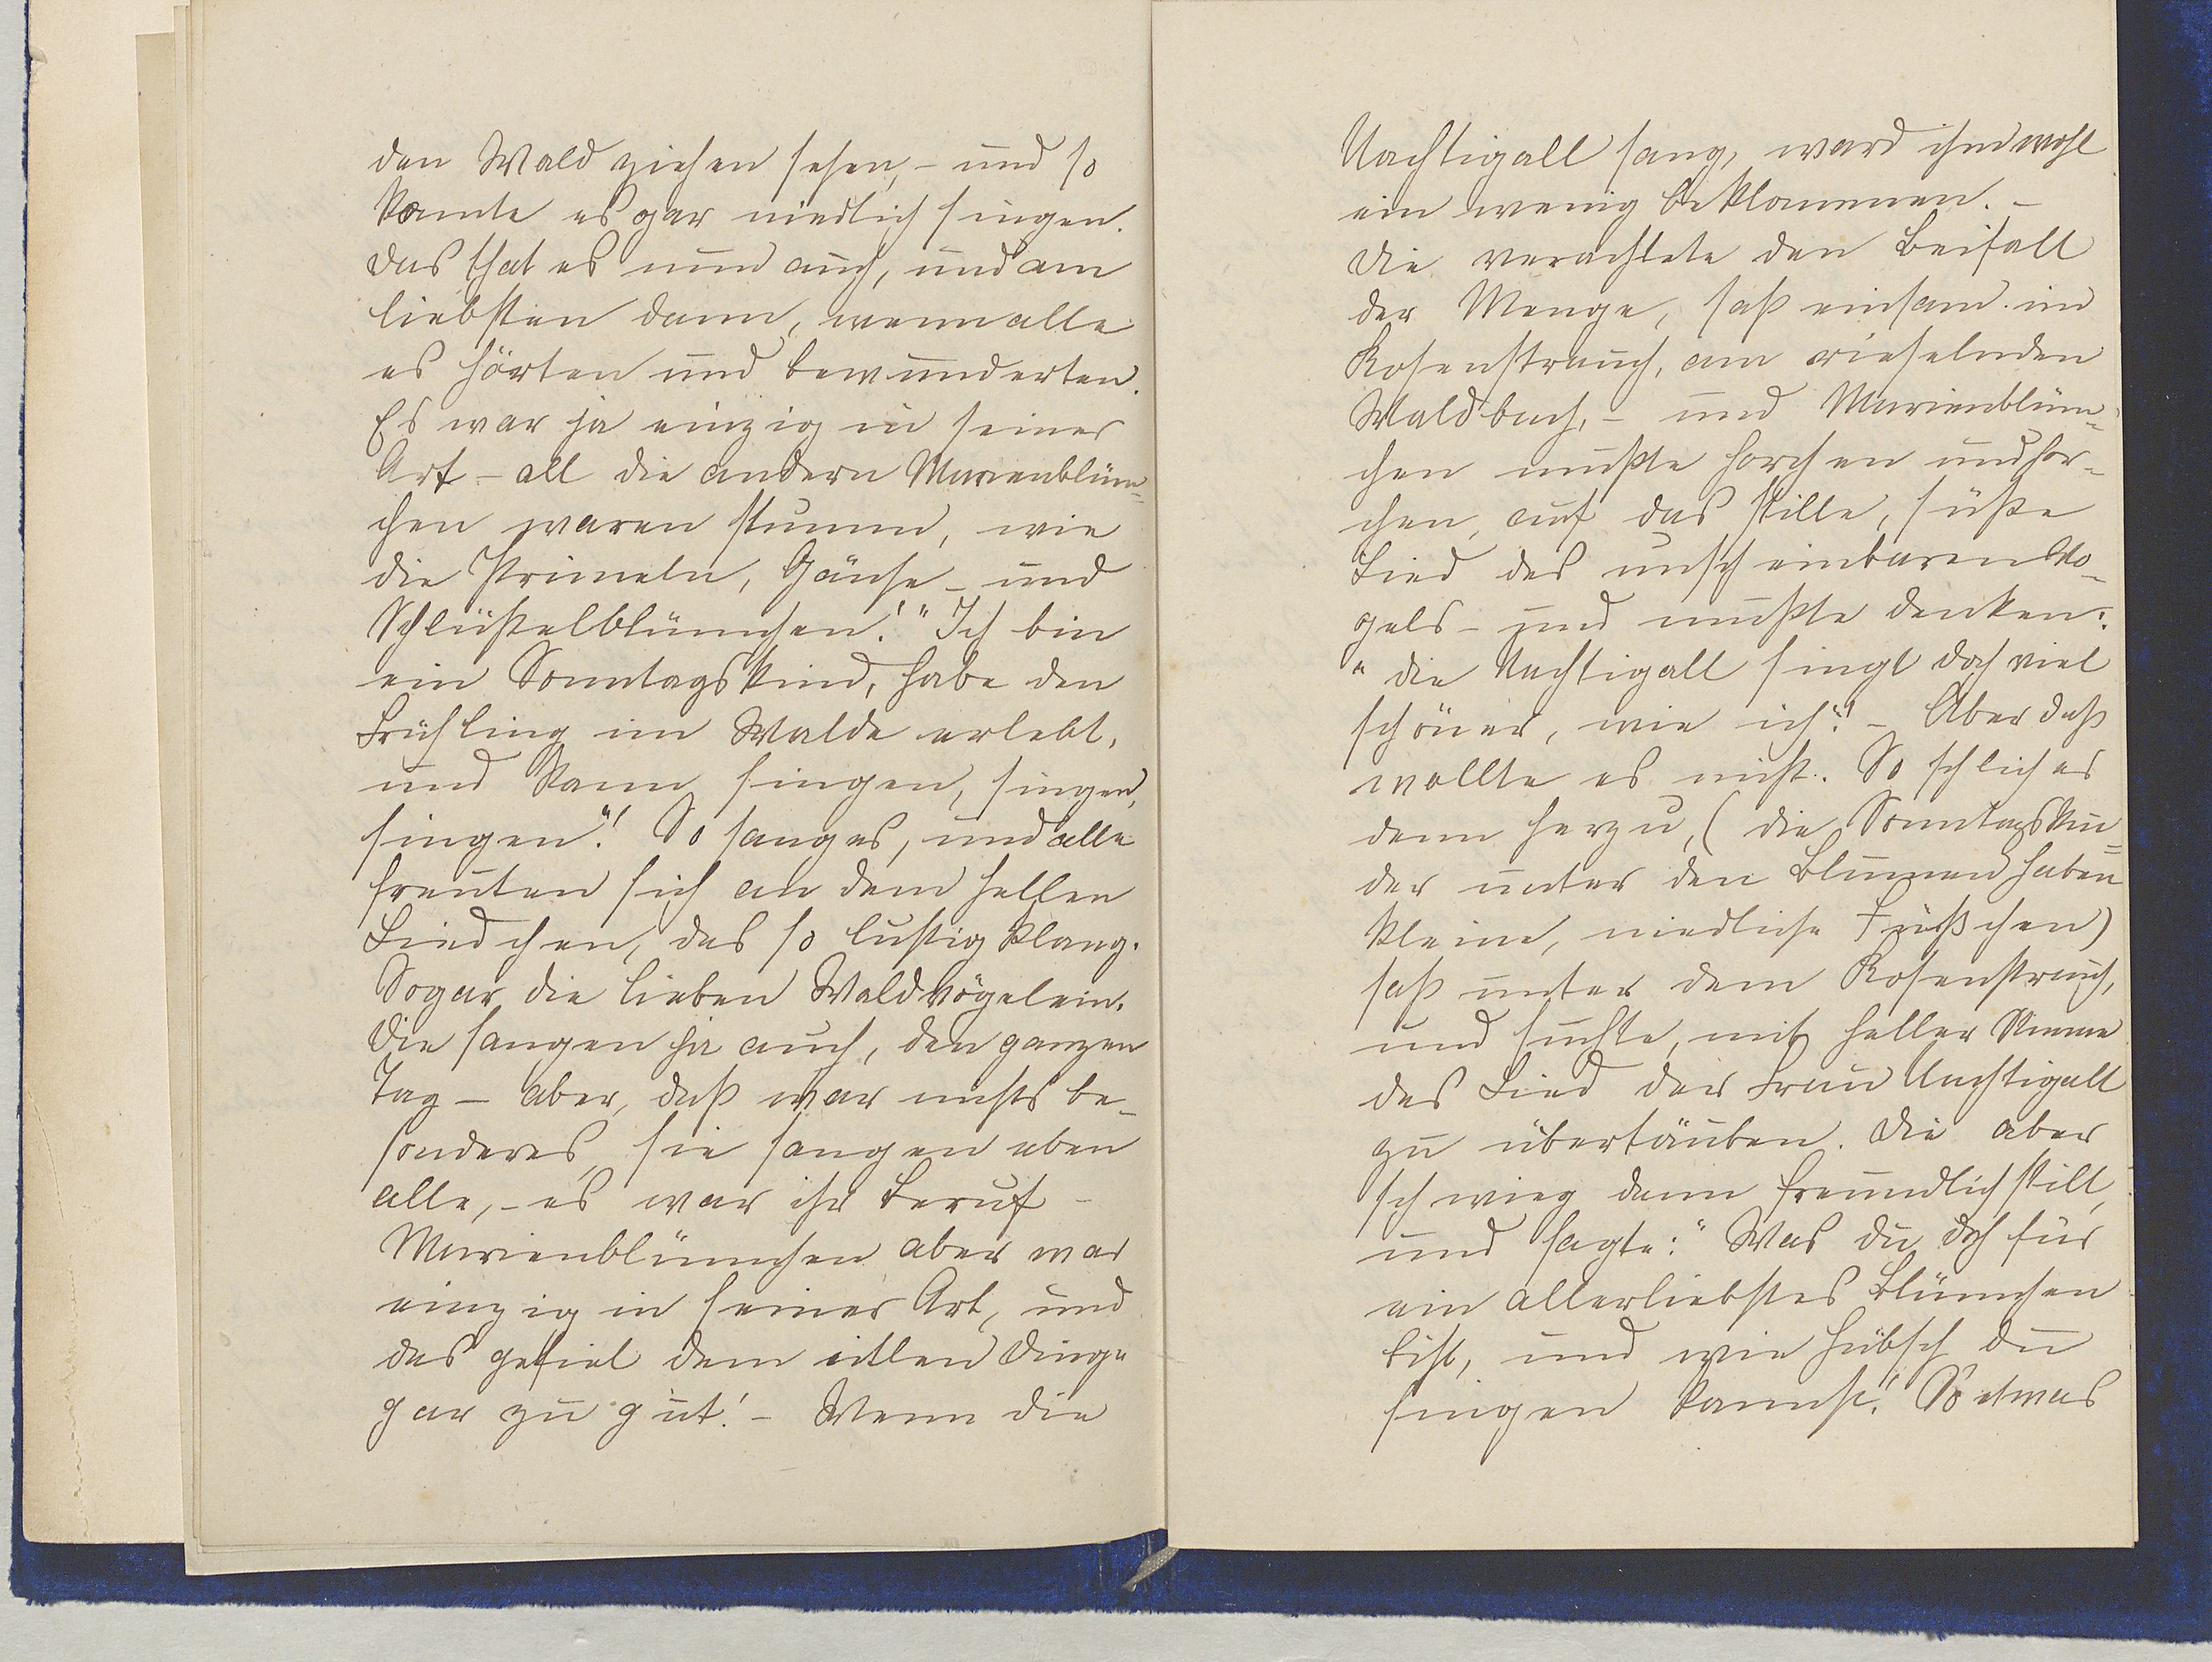 den Wald ziehen sehen, – und so
konnte es gar niedlich singen.
Das that es nun auch, und am
liebsten dann, wenn alle
es hörten und bewunderten.
Es war ja einzig in seiner
Art – all die andern Marienblüm-
chen waren stumm, wie
die Primeln, Gänse- und
Schlüsselblümchen! "Ich bin
ein Sonntagskind, habe den
Frühling im Walde erlebt,
und kann singen, singen,
singen"! So sang es, und alle
freuten sich an dem hellen
Liedchen, das so lustig klang.
Sogar die lieben Waldvögelein.
Die sangen ja auch, den ganzen
Tag – aber, daß war nichts be-
sonderes, sie sangen eben
alle, – es war ihr Beruf –
Marienblümchen aber war
einzig in seiner Art, und
das gefiel dem eitlen Dinge
gar zu gut! – Wenn die
Nachtigall sang, ward ihm wohl
ein wenig beklommen. –
Die verachtete den Beifall
der Menge, saß einsam im
Rosenstrauch, am rieselnden
Waldbach, – und Marienblüm-
chen mußte horchen und hor-
chen, auf das stille, süße
Lied des unscheinbaren Vo-
gels – und mußte denken:
"die Nachtigall singt doch viel
schöner, wie ich"! – Aber daß
wollte es nicht. So schlich es
denn herzu, (die Sonntagskin-
der unter den Blumen haben
kleine, niedliche Füßchen)
saß unter dem Rosenstrauch,
und suchte, mit heller Stimme
das Lied der Frau Nachtigall
zu übertäuben. Die aber
schwieg dann freundlich still,
und sagte: "Was du doch für
ein allerliebstes Blümchen
bist, und wie hübsch du
singen kannst! So etwas